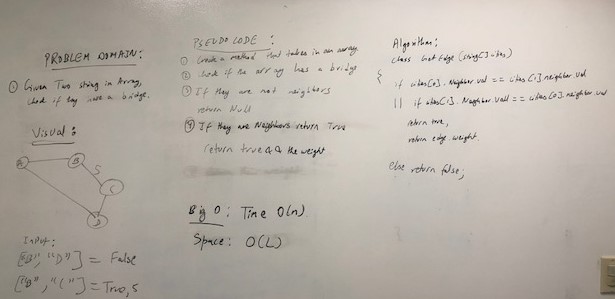 PROBLEM DOMAIN:
① Given Two string in Array,
check if they have a bridge.
Visual:
A
B
5
C
D
Input:
["B", "D"] = False
["B", "C"] = True, 5
PSEUDO CODE:
① Create a method that takes in an array
② check if the array has a bridge
③ If they are not neighbors
return Null
④ If they are Neighbors return True
return true && the weight
Big O: Time O(n)
Space: O(L)
Algorithm:
class Get Edge (string[] cities)
{
if cities[0]. Neighbor.val == cities[1].neighbor.val
|| if cities[1]. Neighbor.val == cities[0].neighbor.val
return true,
return edge.weight.
else return false;